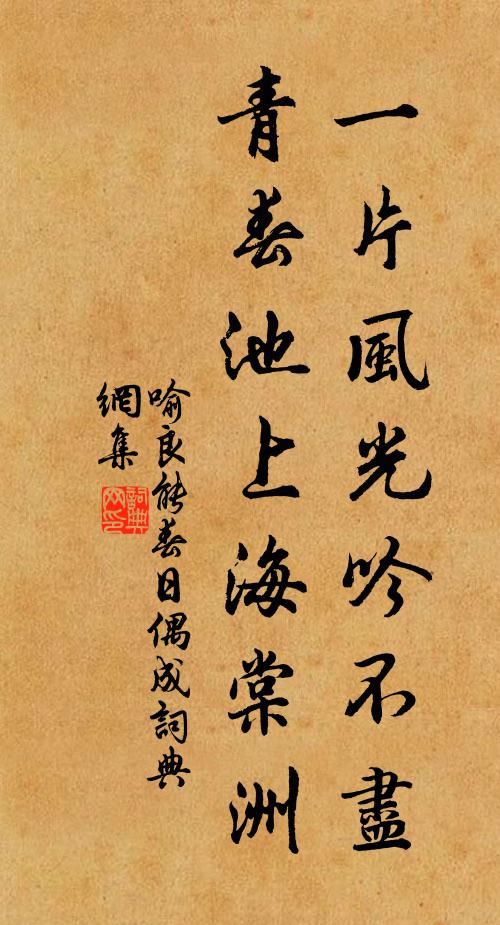 一片風光吟不盡
青春池上海棠洲
喻良能春日偶成詞典
網集
詞典
网印